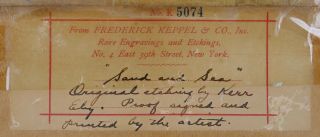 No. K 5074
From FREDERICK KEPPEL & CO., Inc.
Rare Engravings and Etchings,
No. 4 East 39th Street, New York.
"Sand and Sea"
Original etching by Kerr
Eby. Proof signed and
printed by the artist.